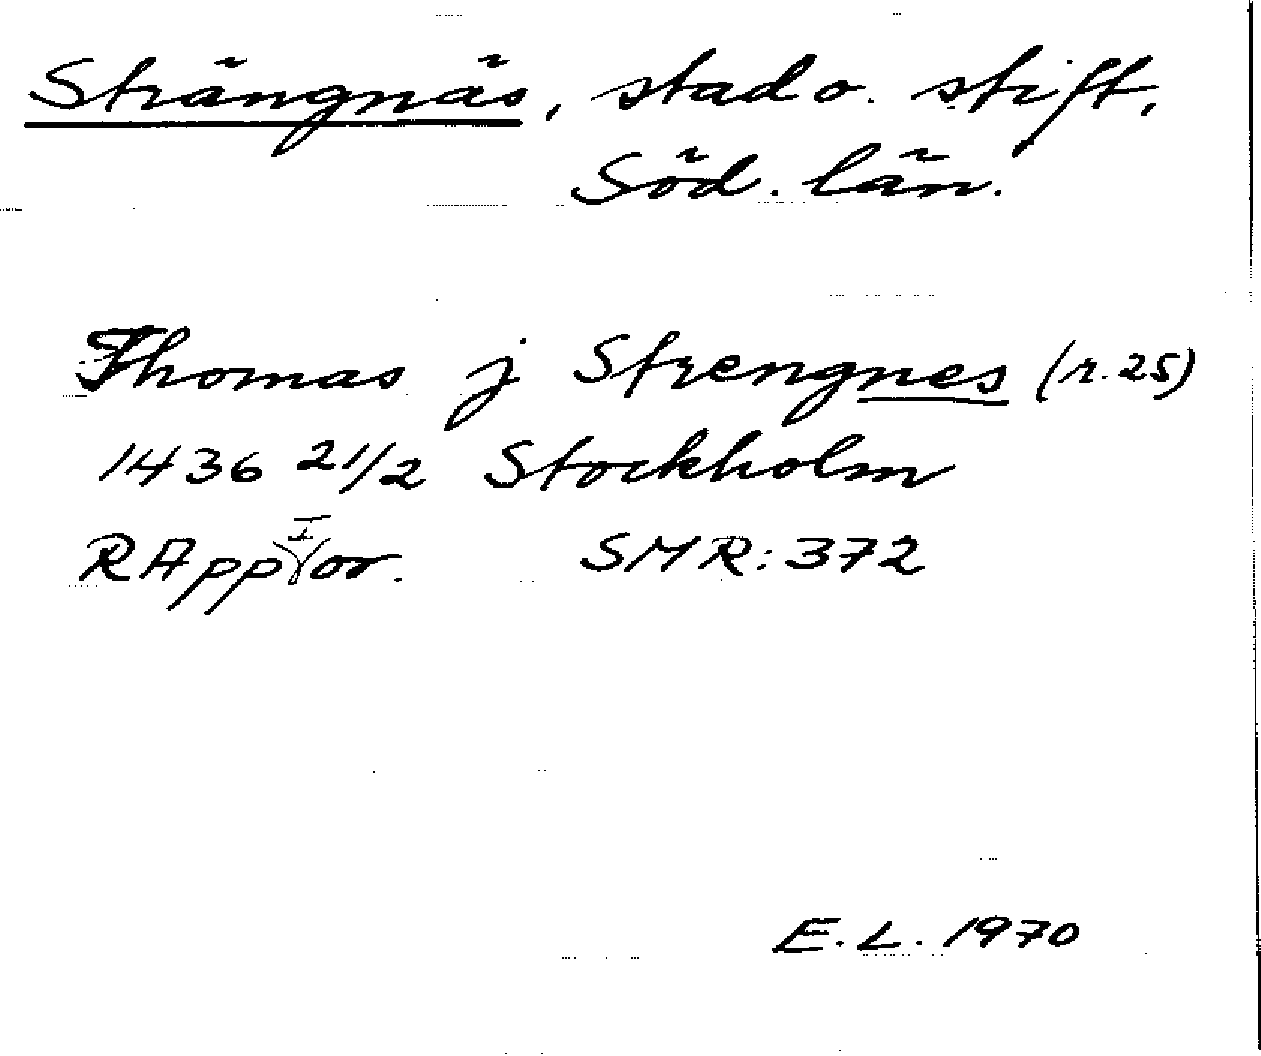 Strängnäs, stad o. stift,
Söd. län.
Thomas j Strengnes (r. 25)
1436 21/2 Stockholm
RApp I or. SMR: 372
E.L. 1970